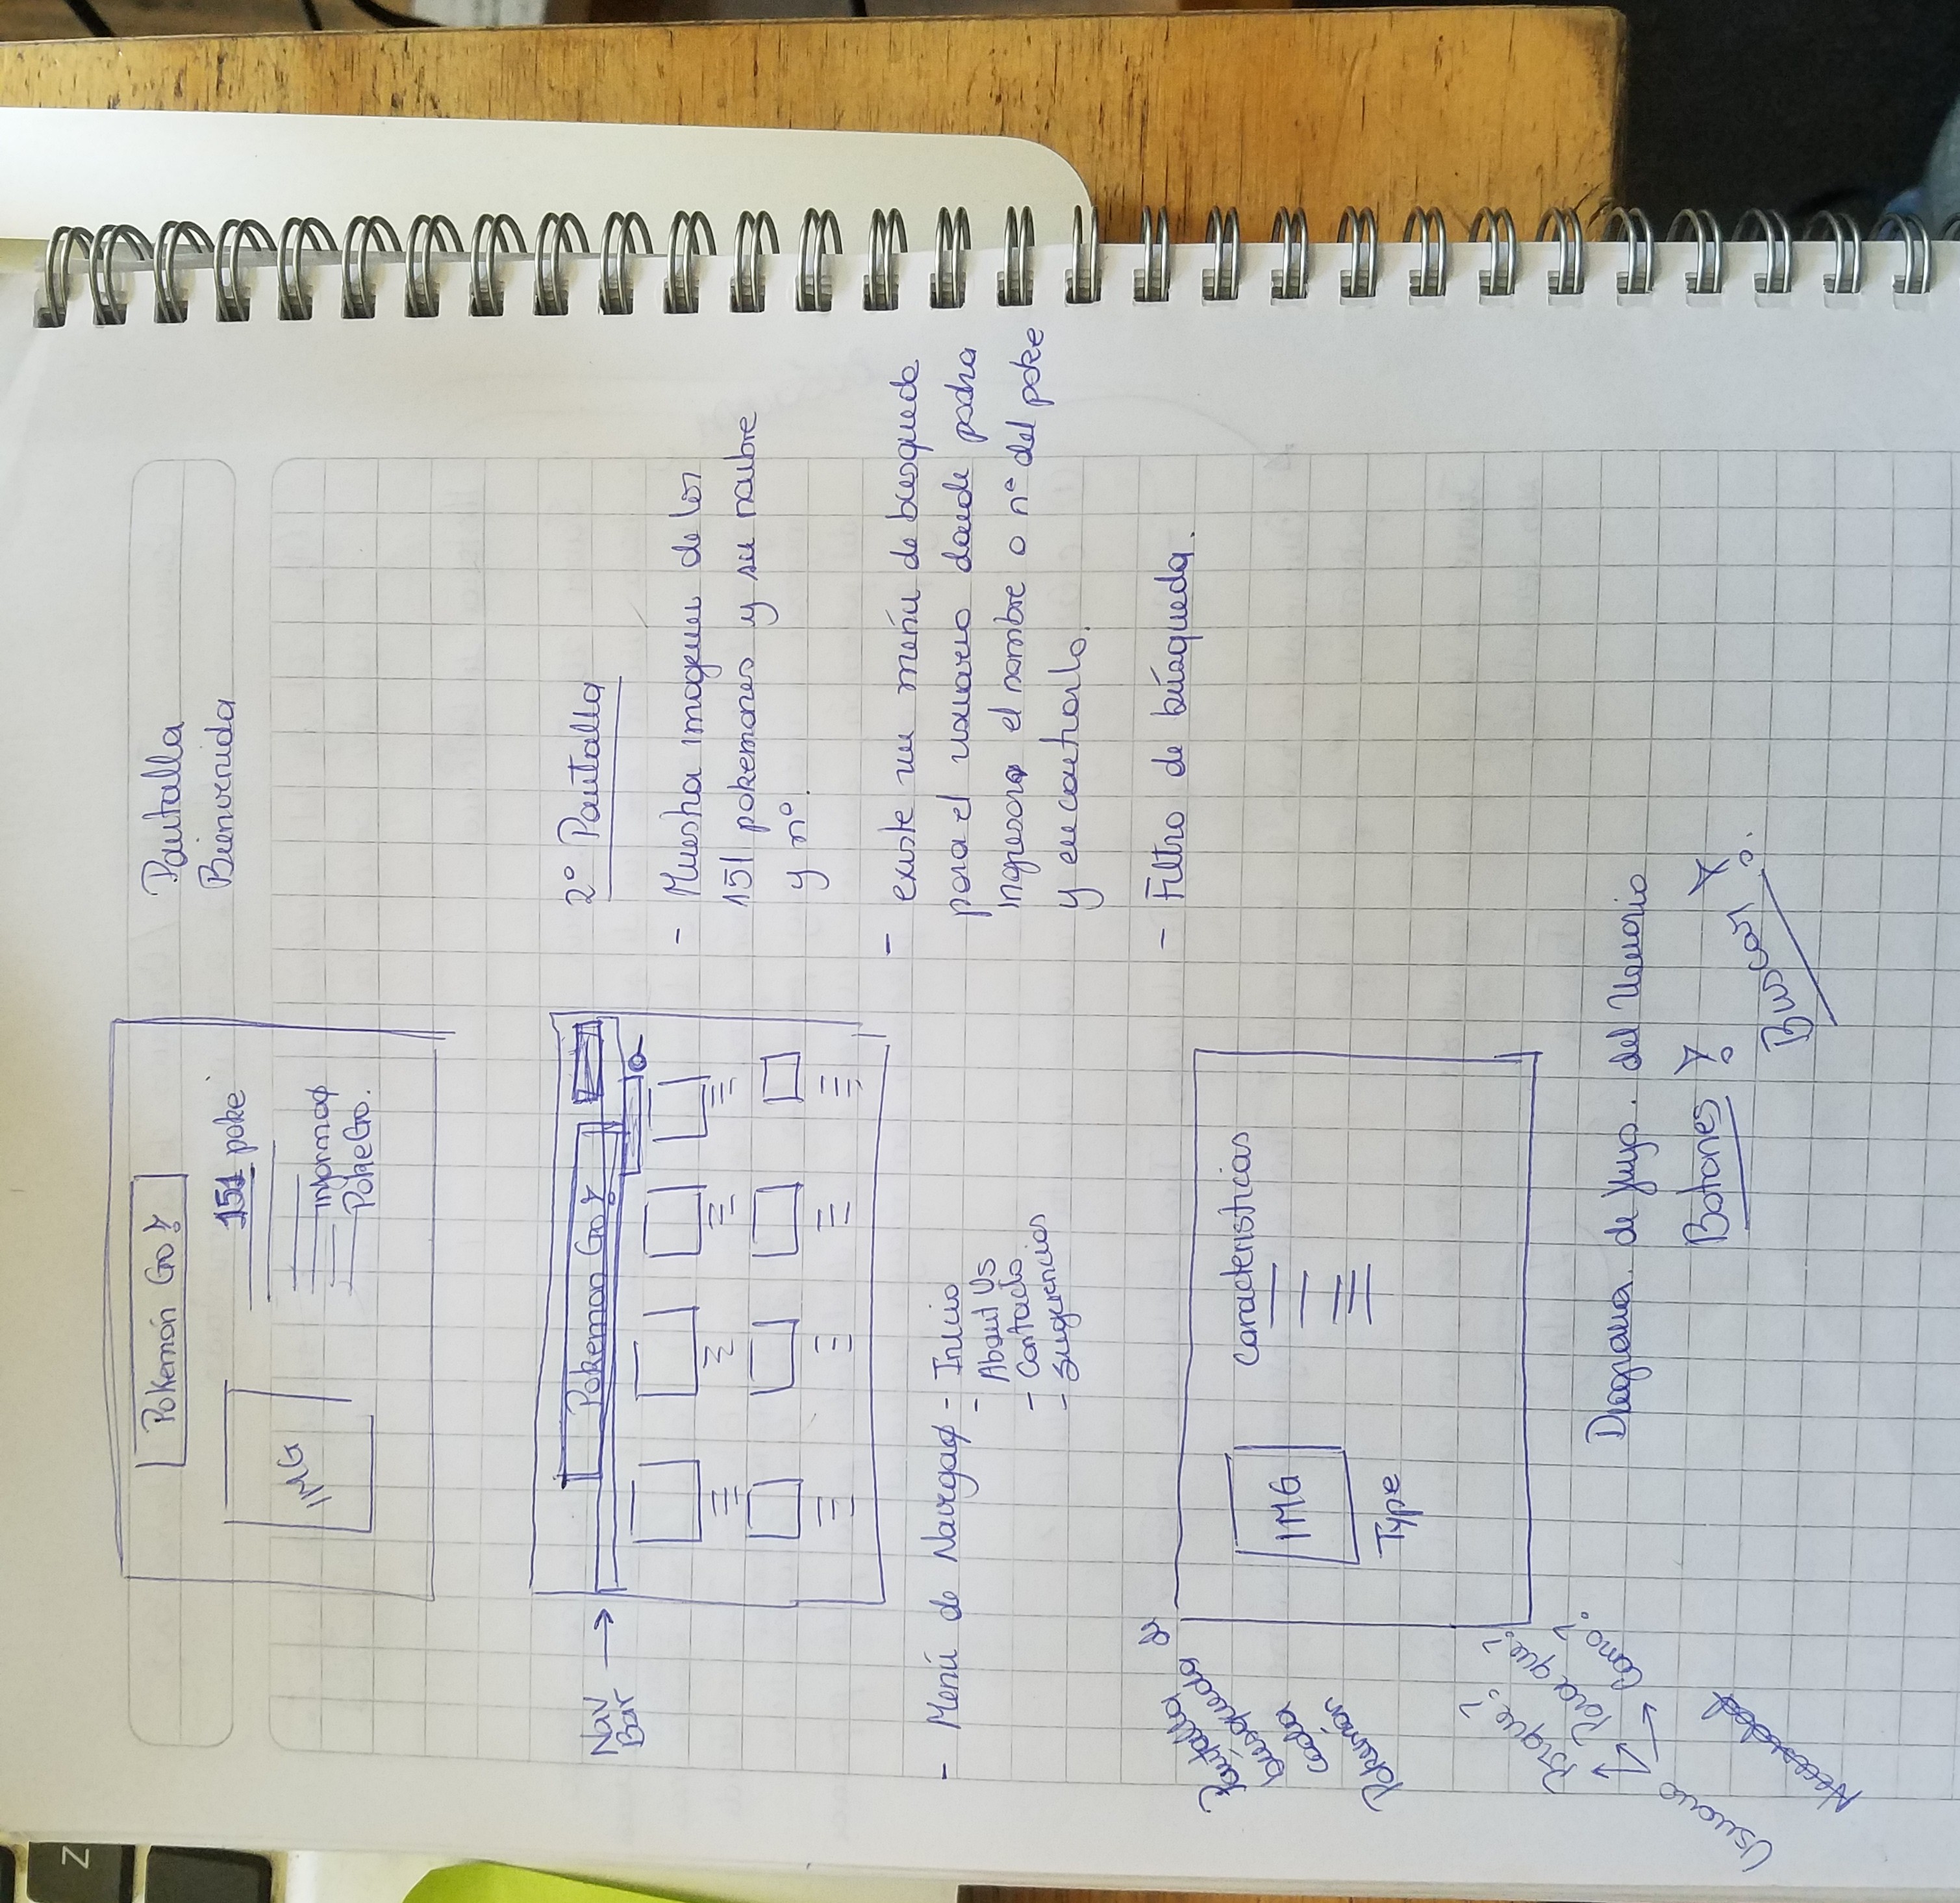 Z
Pokemón Go!
151 poke
IMG
informaø
PokeGo.
Pantalla
Bienvenida
Nav
Bar
Pokemon Go!
2° Pantalla
- Muestra imagenes de los
151 pokemones y su nombre
y n°.
- existe un menú de busqueda
para el usuario donde podra
ingresar el nombre o n° del poke
y encontrarlo.
- Filtro de búsqueda.
- Menú de Navegaø - Inicio
- About Us
- Contacto
- Sugerencias
Pantalla de
búsqueda
cada
Pokemón
IMG
Type
caracteristicas
Usuario
Porque?
Para que?
Como?
Necesidad
Diagrama. de flujo. del Usuario
Botones !
Buscar !